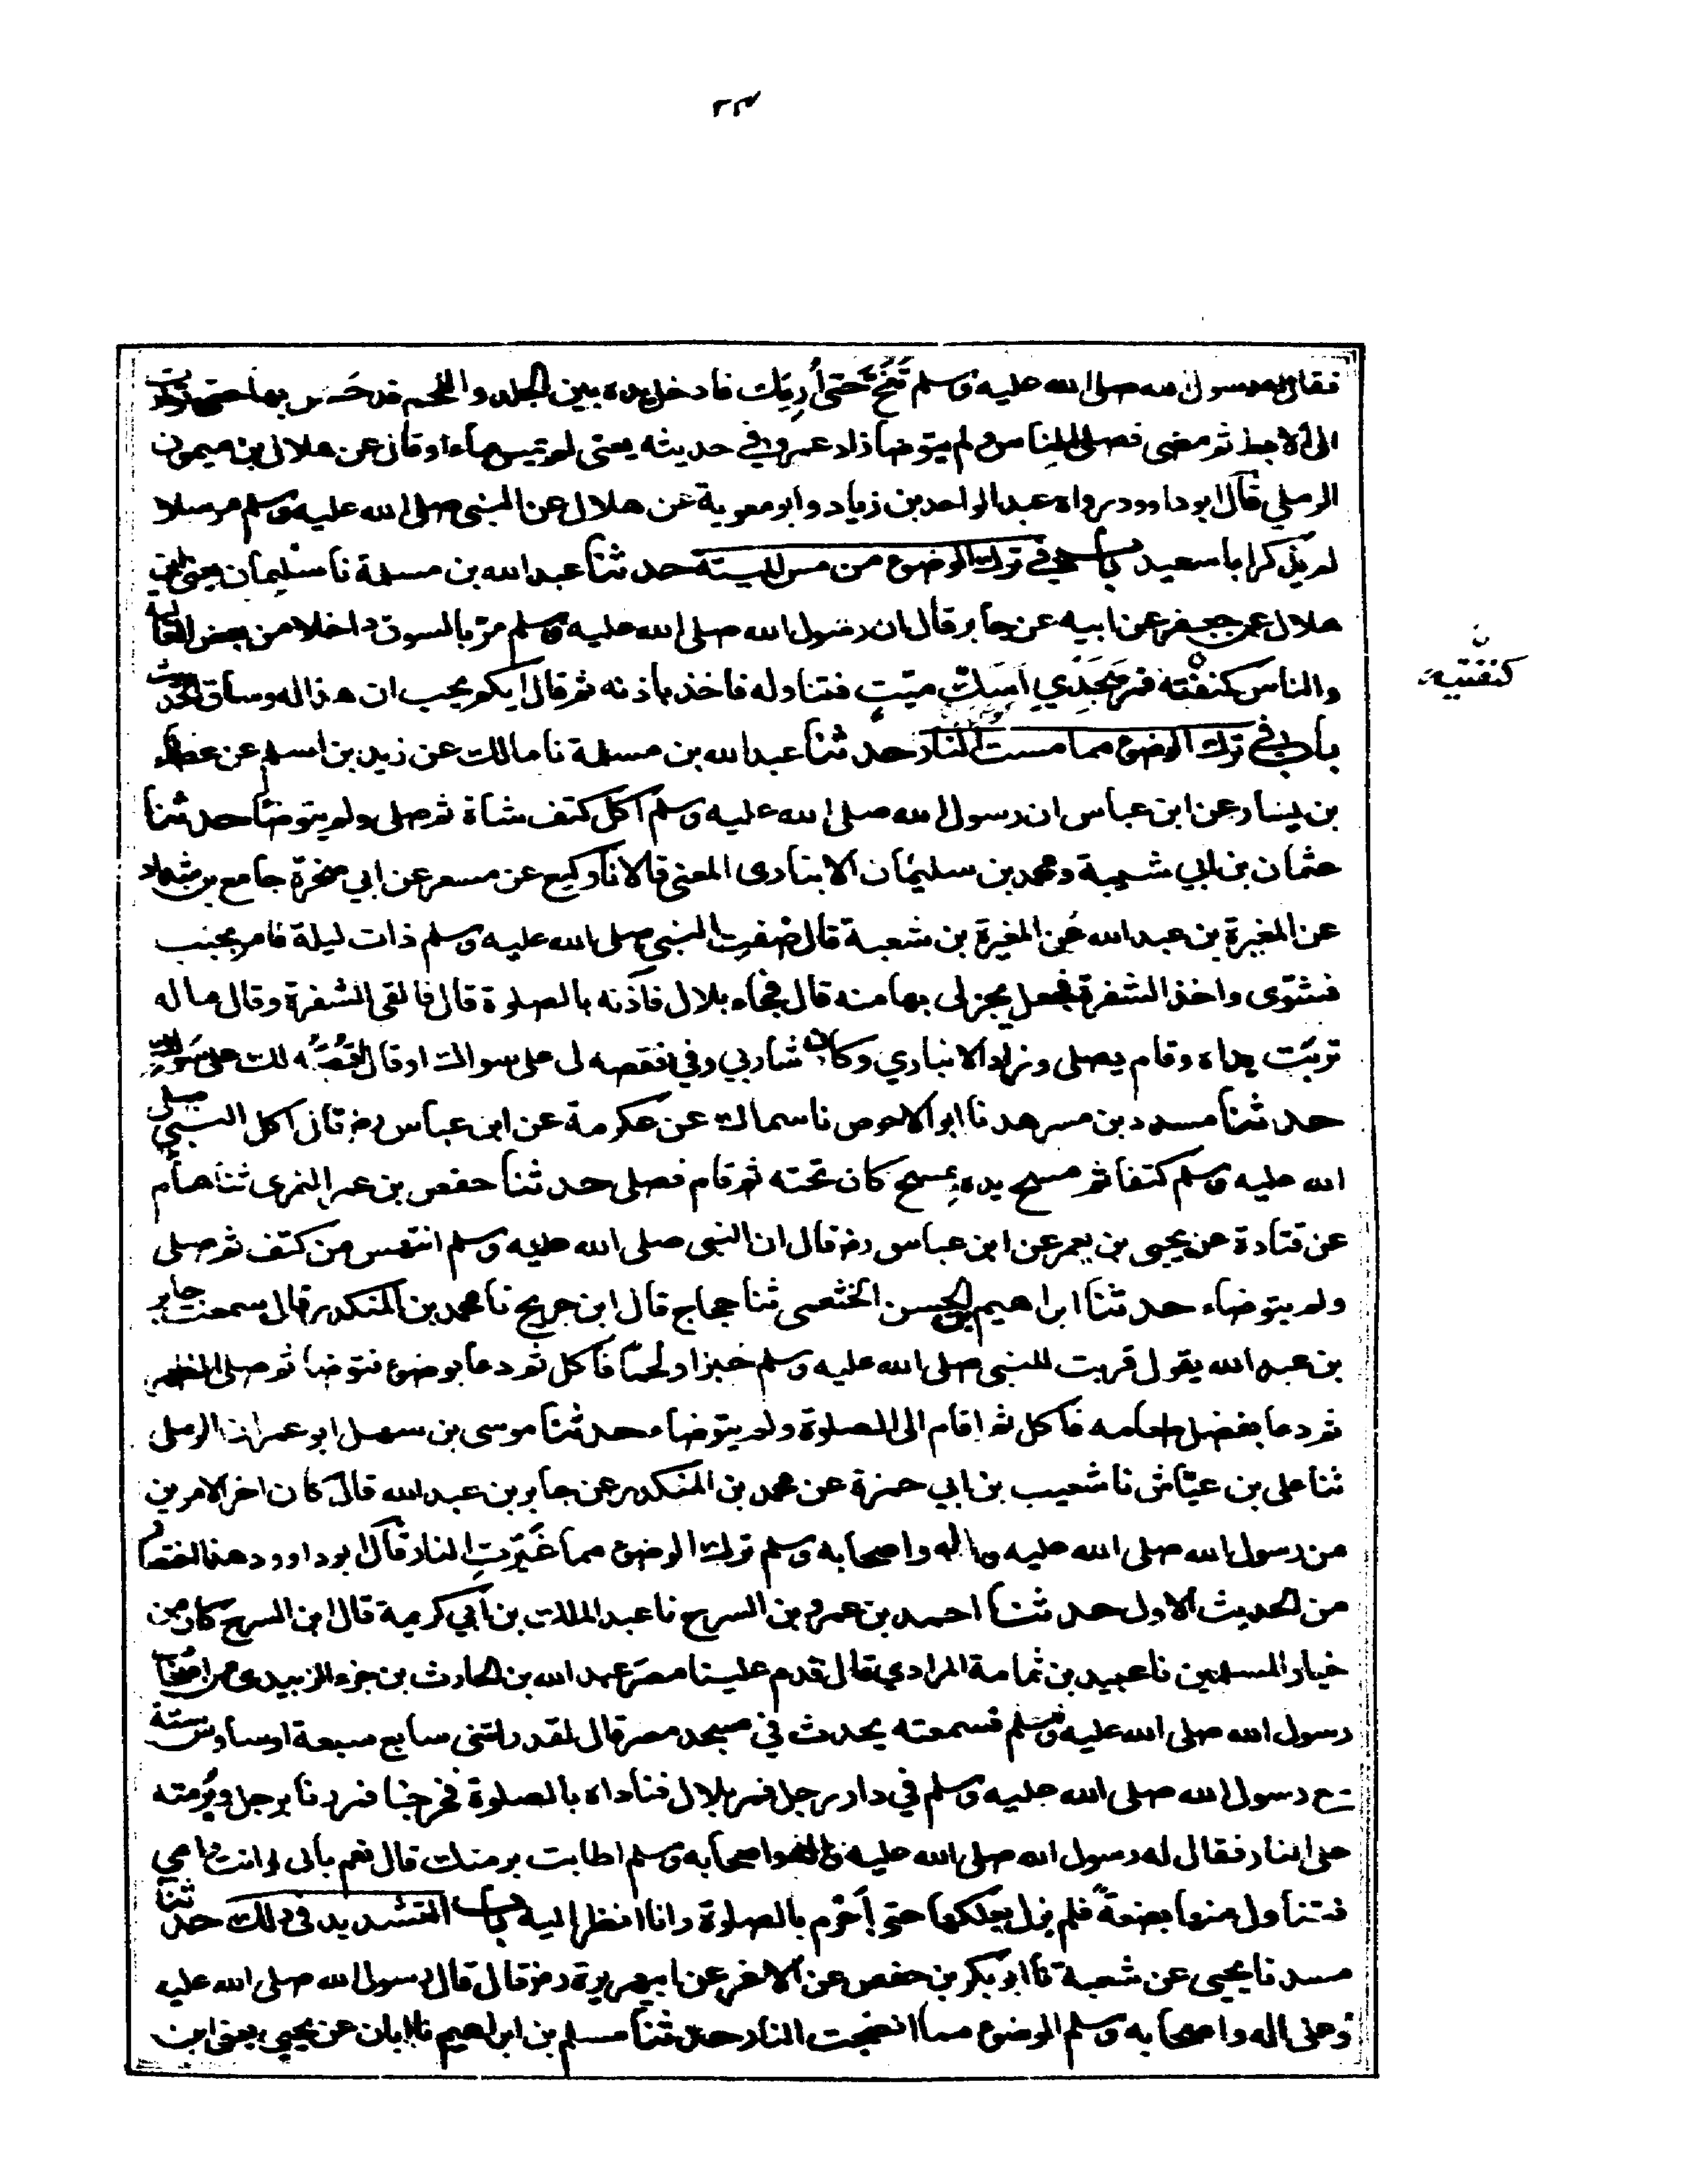 ٢٣
فقال له رسول الله صلى الله عليه وسلم تَنَحَّ حَتّى أُرِيَك فادخل يده بين الجلد واللحم فدحس بها حتى توارت
الى الابط ثم مضى فصلى للناس ولم يتوضا زاد عمرو في حديثه يعنى لم تمس ماء وقال عن هلال بن ميمون
الرملي قال ابو داوود رواه عبد الواحد بن زياد وابو معوية عن هلال عن النبى صلى الله عليه وسلم مرسلا
لم يذكر ابا سعيد باب في ترك الوضوء من مس الميتة حدثنا عبد الله بن مسلمة نا سليمان يعنى ابن
هلال عن جعفر عن ابيه عن جابر قال ان رسول الله صلى الله عليه وسلم مرّ بالسوق داخلا من بعض العالية
والناس كنفته فمر بجَدْي اَسَكَّ ميّتٍ فتناوله فاخذ باذنه ثم قال ايكم يحب ان هذا له وساق الحديث
كنفتيه
باب في ترك الوضوء مما مست النار حدثنا عبد الله بن مسلمة نا مالك عن زيد بن اسلم عن عطاء
بن يسار عن ابن عباس ان رسول الله صلى الله عليه وسلم اكل كتف شاة ثم صلى ولم يتوضأ حدثنا
عثمان بن ابي شيبة ومحمد بن سليمان الانبارى المعنى قالا نا وكيع عن مسعر عن ابي صخرة جامع بن شداد
عن المغيرة بن عبد الله عن المغيرة بن شعبة قال ضفت النبي صلى الله عليه وسلم ذات ليلة فامر بجنب
فشوّى واخذ الشفرة فجعل يجز لى بها منه قال فجاء بلال فآذنه بالصلوة قال فالقى الشفرة وقال ما له
تربت يداه وقام يصلى وزاد الانباري وكان شاربي وفى فقصه لى على سواك او قال اقصه لك على سواك
حدثنا مسدد بن مسرهد نا ابو الاحوص نا سماك عن عكرمة عن ابن عباس رضـ قال اكل النبي صلى
الله عليه وسلم كتفا ثم مسح يده بمسح كان تحته ثم قام فصلى حدثنا حفص بن عمر النمرى ثنا همام
عن قتادة عن يحيى بن يعمر عن ابن عباس رضـ قال ان النبى صلى الله عليه وسلم انتهس من كتف ثم صلى
ولم يتوضاء حدثنا ابراهيم بن الحسن الخثعمى ثنا حجاج قال ابن جريج نا محمد بن المنكدر قال سمعت جابر
بن عبد الله يقول قربت للنبى صلى الله عليه وسلم خبزا ولحمًا فأكل ثم دعا بوضوء فتوضا ثم صلى الظهر
ثم دعا بفضل طعامه فاكل ثم اقام الى الصلوة ولم يتوضاء حدثنا موسى بن سهل ابو عمران الرملى
ثنا على بن عيّاش نا شعيب بن ابي حمزة عن محمد بن المنكدر عن جابر بن عبد الله قال كان اخر الامرين
من رسول الله صلى الله عليه واله واصحابه وسلم ترك الوضوء مما غَيّرتِ النار قال ابو داوود هذا اختصار
من الحديث الاول حدثنا احمد بن عمرو بن السرح نا عبد الملك بن ابي كريمة قال ابن السرح كان من
خيار المسلمين نا عبيد بن ثمامة المرادي قال قدم علينا مصر عبد الله بن الحارث بن جزء الزبيدى من اصحاب
رسول الله صلى الله عليه وسلم فسمعته يحدث في مسجد مصر قال لقد رايتنى سابع سبعة او سادس ستة
مع رسول الله صلى الله عليه وسلم في دار رجل فمر بلال فناداه بالصلوة فخرجنا فمررنا برجل وبُرمته
على النار فقال له رسول الله صلى الله عليه واله واصحابه وسلم اطابت برمتك قال نعم بأبى انت وامي
فتناول منها بضعةً فلم يزل يعلكها حتى اَحْرم بالصلوة وانا انظر اليه باب التشديد في ذلك حدثنا
مسدد نا يحيى عن شعبة نا ابو بكر بن حفص عن الاغر عن ابي هريرة رضـ قال قال رسول الله صلى الله عليه
وعلى اله واصحابه وسلم الوضوء مما انضجت النار حدثنا مسلم بن ابراهيم نا ابان عن يحيى يعنى ابن